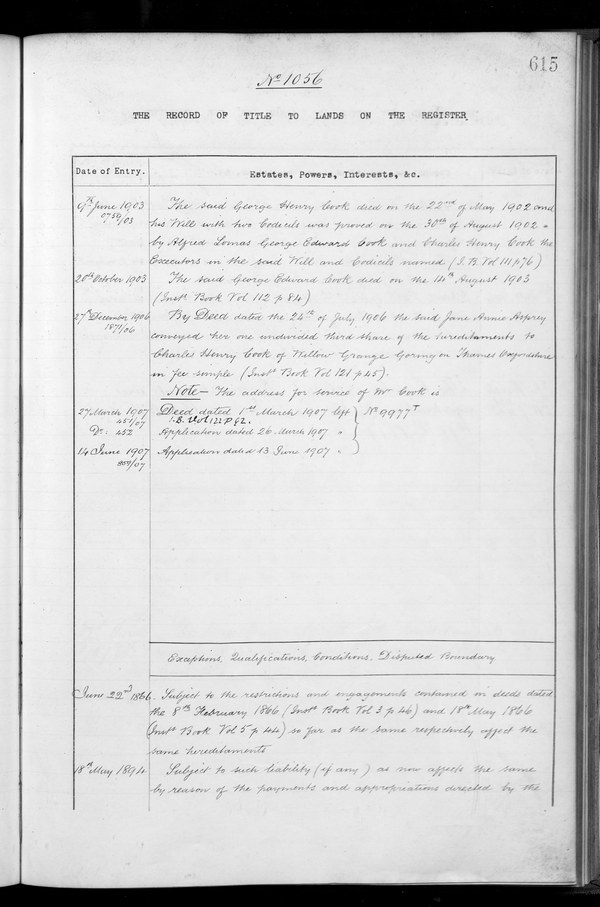 615
No 1056
THE RECORD OF TITLE TO LANDS ON THE REGISTER
Date of Entry.
Estates, Powers, Interests, &c.
9th June 1903
/03
The said George Henry Cook died on the 22nd of May 1902 and
his Will with two Codicils was proved on the 30th of August 1902
by Alfred Lomas George Edward Cook and Charles Henry Cook the
Executors in the said Will and Codicils named (I.B. Vol 111 p 76)
20th October 1903
The said George Edward Cook died on the 14th August 1903
(Instt Book Vol 112 p 84)
27th December 1906
1871/06
By Deed dated the 24th of July 1906 the said Jane Annie Asprey
conveyed her one undivided third share of the hereditaments to
Charles Henry Cook of Willow Grange Goring on Thames Oxfordshire
in fee simple (Instt Book Vol 121 p 45).
Note - The address for service of Mr Cook is
27 March 1907
451/07
Deed dated 1st March 1907 left
No 9977T
I.B. Vol 121 P 92.
Do: 452
Application dated 26 March 1907 "
14 June 1907
/07
Application dated 13 June 1907 "
Exceptions, Qualifications, Conditions, Disputed Boundary
June 22nd 1866.
Subject to the restrictions and engagements contained in deeds dated
the 8th February 1866 (Instt Book Vol 3 p 46) and 18th May 1866
(Instt Book Vol 5 p 44) so far as the same respectively affect the
same hereditaments
18th May 1894
Subject to such liability (if any) as now affects the same
by reason of the payments and appropriations directed by the